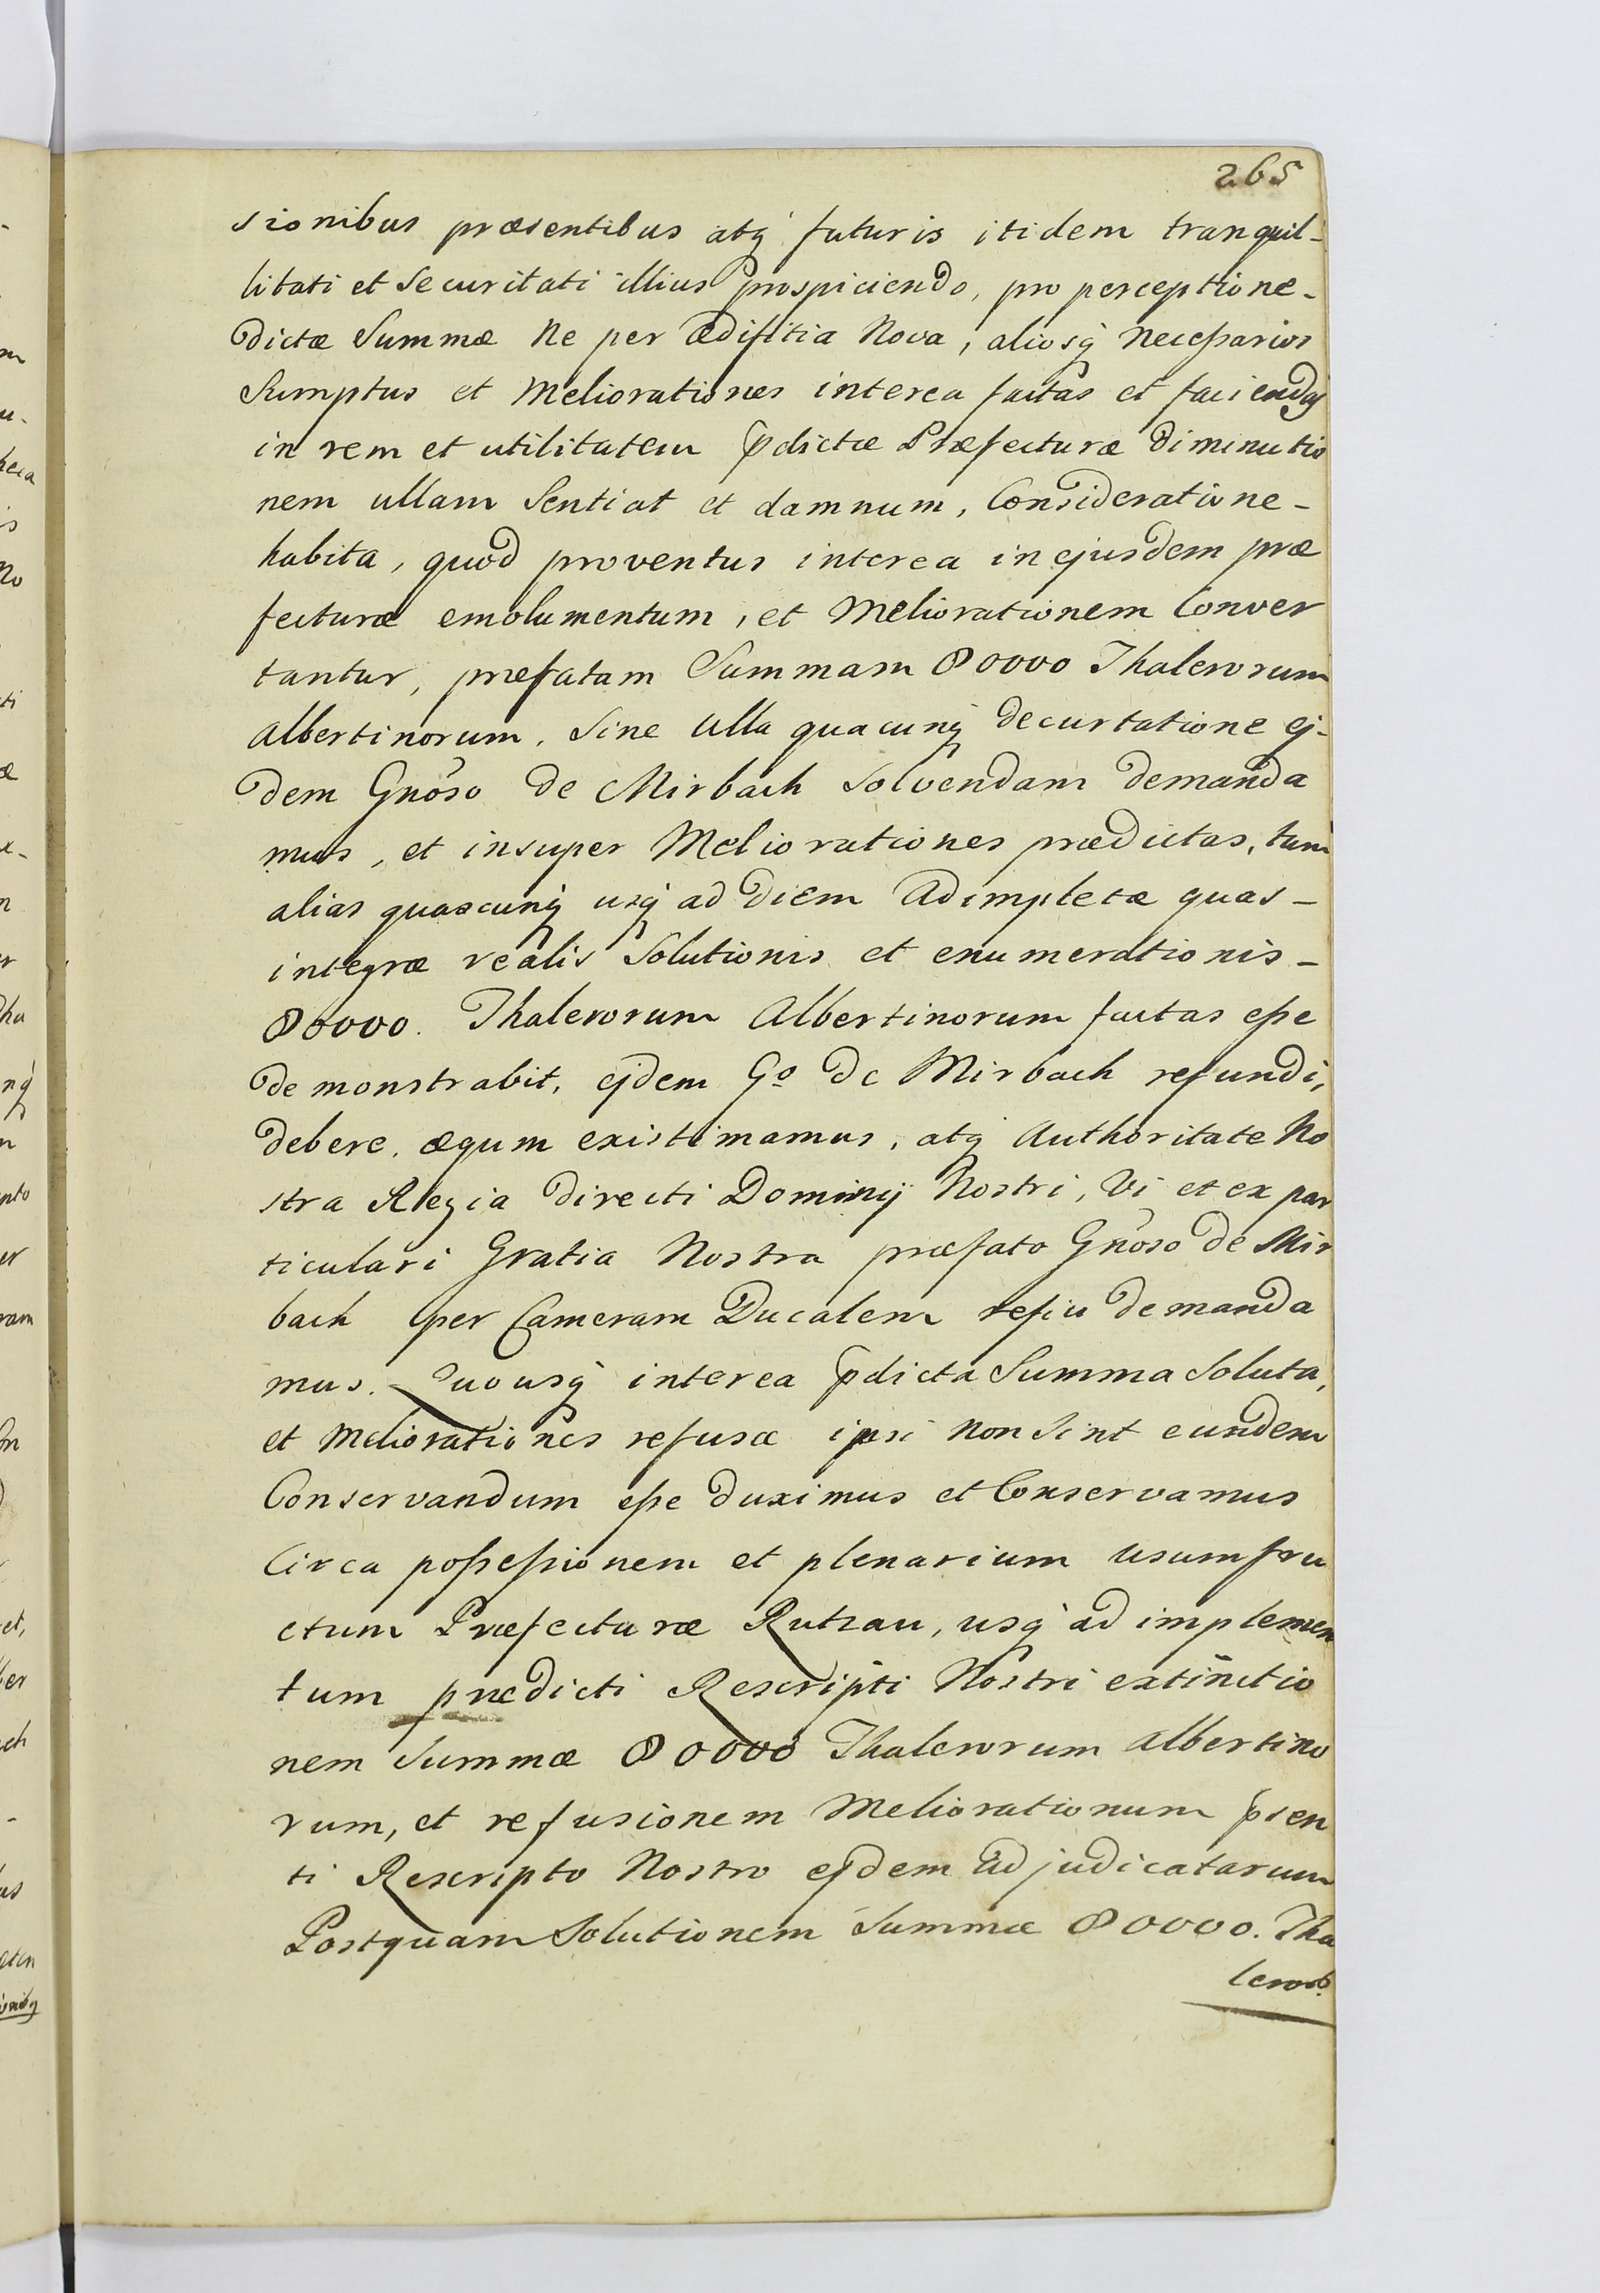 265
sionibus præsentibus atq́ futuris itidem tranquil-
litati et Securitati illius prospiciendo, pro perceptione-
dictæ Summæ Ne per ædifitia Nova, aliosq́ Necessarios
Sumptus et Meliorationes interea factas et faciendas
in rem et utilitatem pdictæ Præfecturæ diminutio
nem ullam Sentiat et damnum, Consideratione-
habita, quod proventus interea in ejusdem præ
fecturæ emolumentum, et Meliorationem Conver
tantur, præfatam Summam 80000 Thalerorum
Albertinorum, Sine Ulla quacunq́ decurtatione ej-
dem Gnoso de Mirbach Solvendam demanda
mus, et insuper Meliorationes prædictas, tam
alias quascunq́ usq́ ad diem Adimpletæ quas-
integræ realis Solutionis et enumerationis-
80000. Thalerorum Albertinorum factas esse
demonstrabit, ejdem Go de Mirbach refundi,
debere, æquum existimamus, atq́ Authoritate No
stra Regia directi Dominij Nostri, Vi et ex par
ticulari Gratia Nostra præfato Gnoso de Mir
bach per Cameram Ducalem demanda
mus. Quousq́ interea pdicta Summa Soluta,
et Meliorationes refusæ ipsi Non Sint eundem
Conservandum esse duximus et Conservamus
Circa possessionem et plenarium usumfru
ctum Præfecturæ Rutzau, usq́ ad implemen
tum prædicti Rescripti Nostri extinctio
nem Summæ 80000 Thalerorum Albertino
rum, et refusionem Meliorationum psen
ti Rescripto Nostro ejdem Adjudicatarum
Postquam Solutionem Summæ 80000. Tha